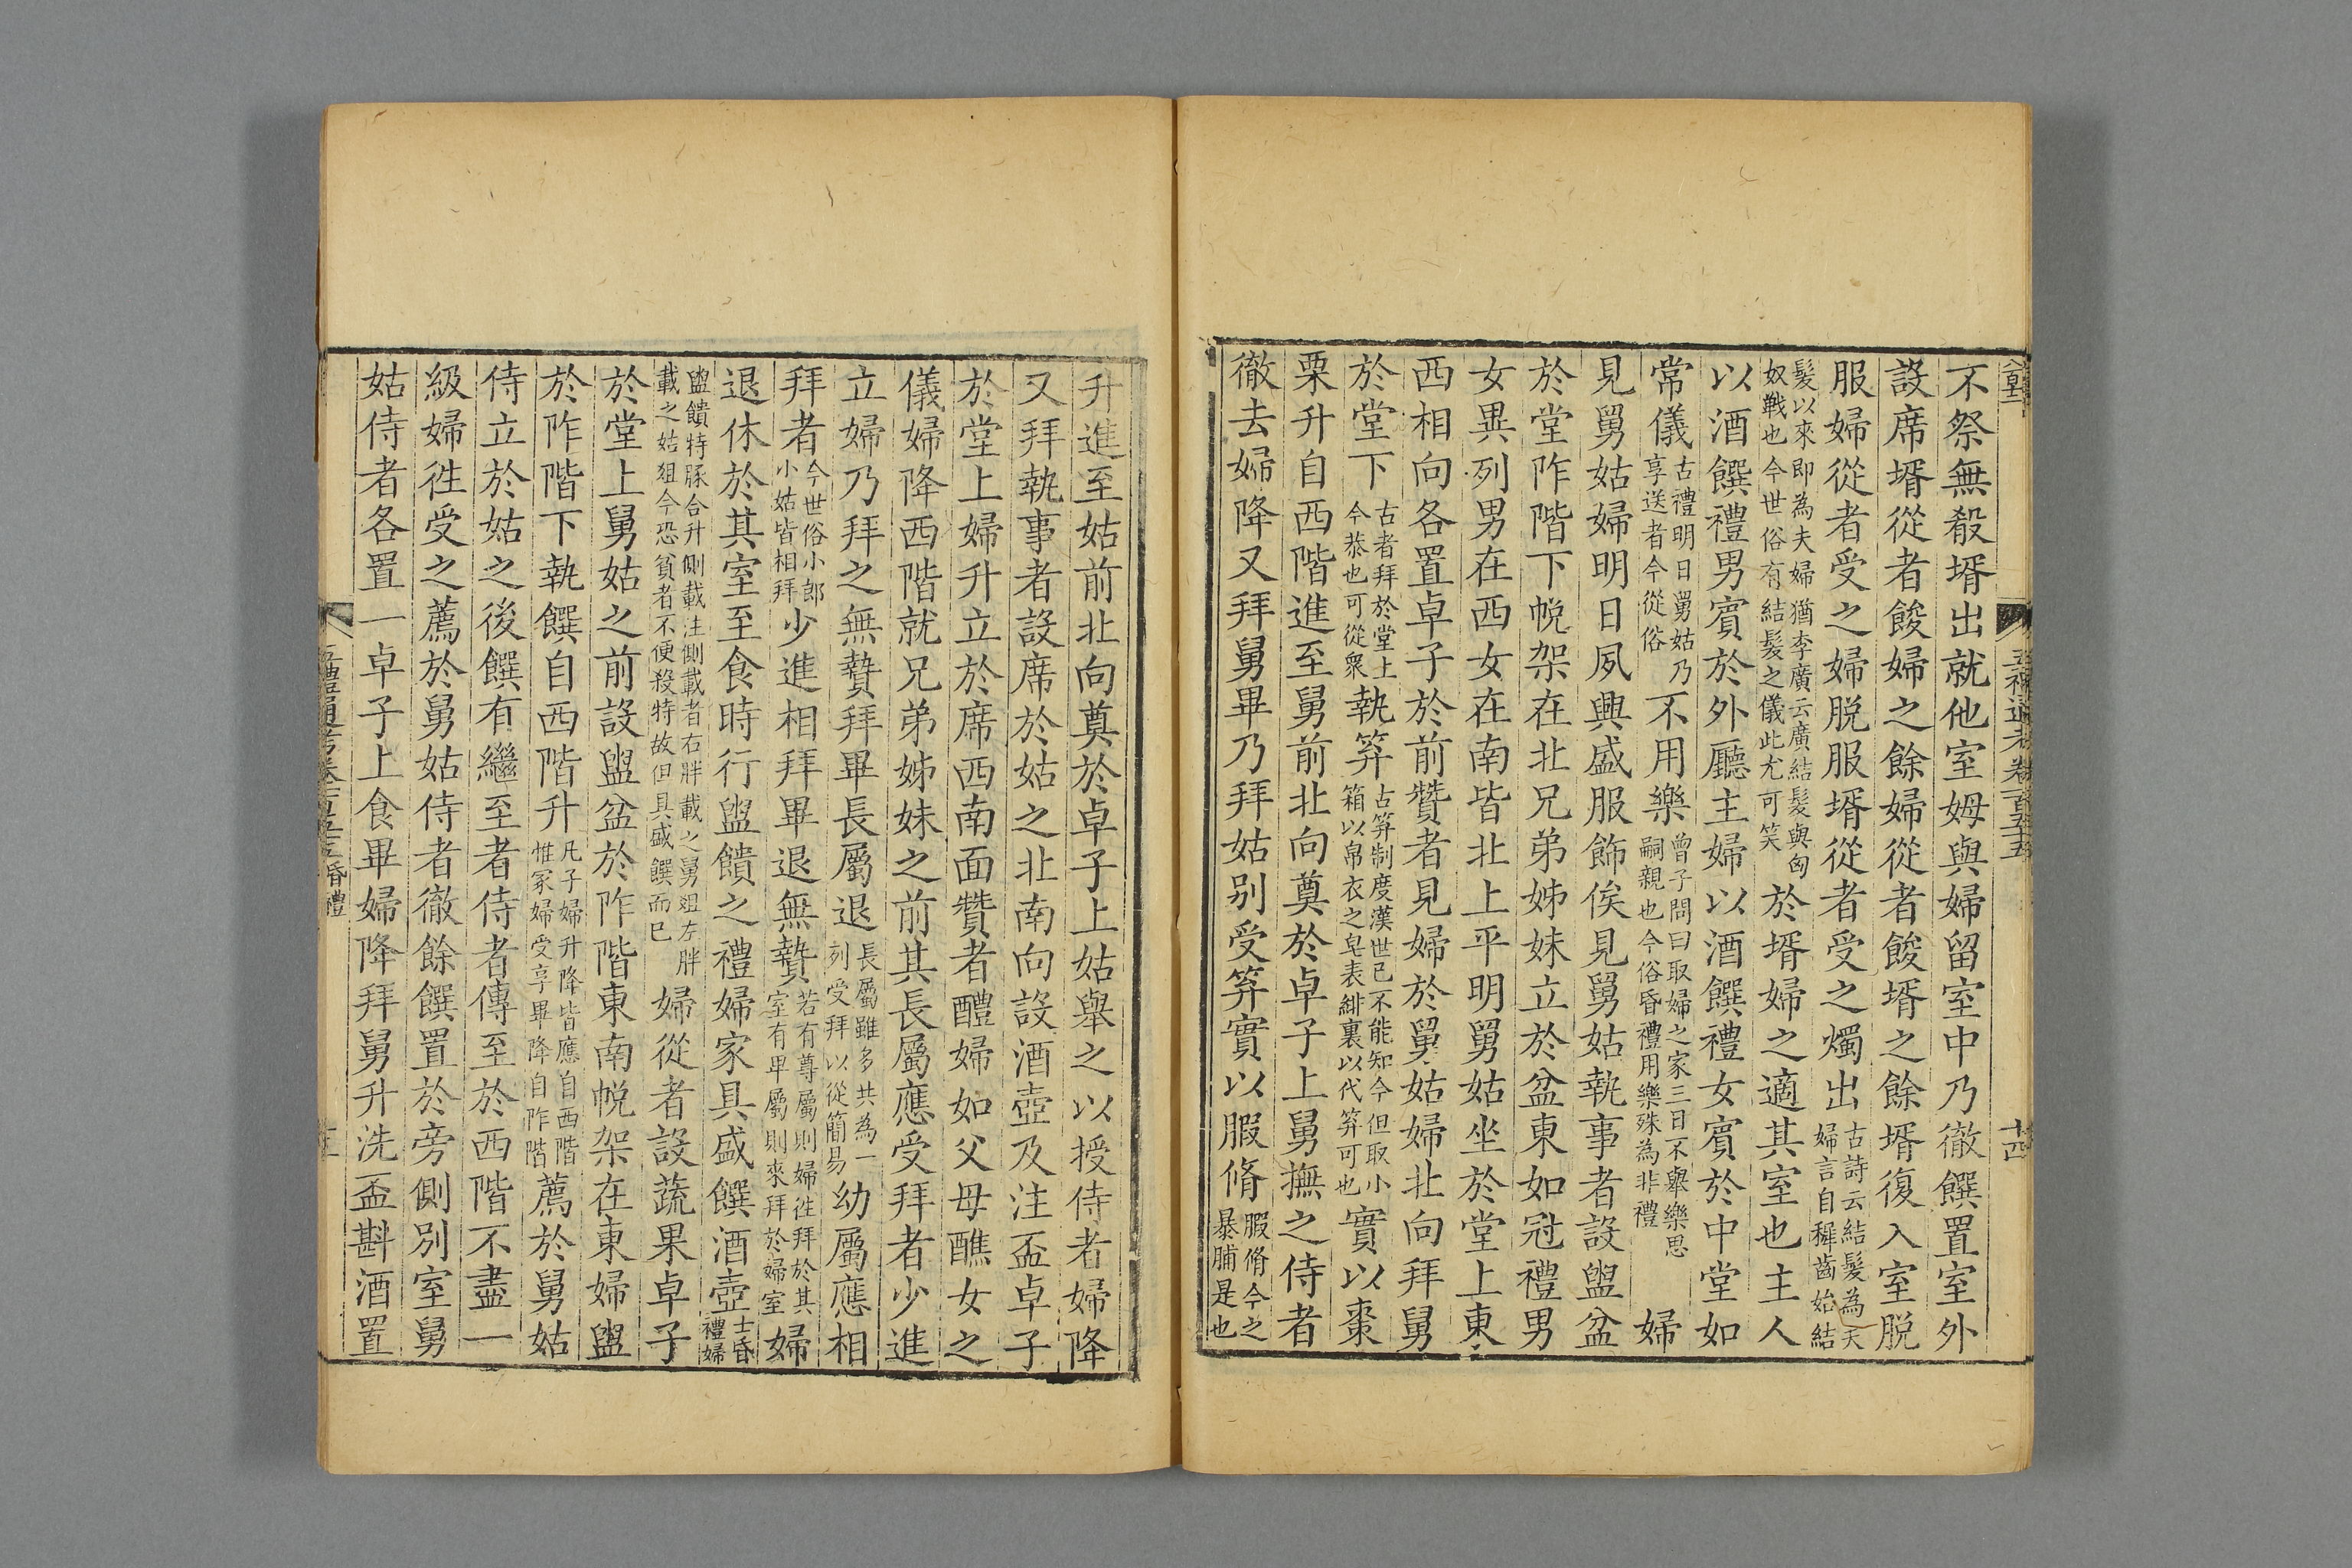 不祭無殽壻出就他室姆與婦留室中乃徹饌置室外
設席壻從者餕婦之餘婦從者餕壻之餘壻復入室脱
服婦從者受之婦脱服壻從者受之燭出古詩云結髮為夫婦言自穉齒始結
髮以來即為夫婦猶李廣云廣結髮與匈奴戰也今世俗有結髮之儀此尤可笑於壻婦之適其室也主人
以酒饌禮男賓於外廳主婦以酒饌禮女賓於中堂如
常儀古禮明日舅姑乃享送者今從俗不用樂曾子問曰取婦之家三日不舉樂思嗣親也今俗昏禮用樂殊為非禮婦
見舅姑婦明日夙興盛服飾俟見舅姑執事者設盥盆
於堂阼階下帨架在北兄弟姊妹立於盆東如冠禮男
女異列男在西女在南皆北上平明舅姑坐於堂上東
西相向各置卓子於前贊者見婦於舅姑婦北向拜舅
於堂下古者拜於堂上今恭也可從衆執笲古笲制度漢世已不能知今但取小箱以帛衣之皂表緋裏以代笲可也實以棗
栗升自西階進至舅前北向奠於卓子上舅撫之侍者
徹去婦降又拜舅畢乃拜姑別受笲實以腶脩腶脩今之暴脯是也
升進至姑前北向奠於卓子上姑舉之以授侍者婦降
又拜執事者設席於姑之北南向設酒壺及注盃卓子
於堂上婦升立於席西南面贊者醴婦如父母醮女之
儀婦降西階就兄弟姊妹之前其長屬應受拜者少進
立婦乃拜之無贄拜畢長屬退長屬雖多共為一列受拜以從簡易幼屬應相
拜者今世俗小郎小姑皆相拜少進相拜畢退無贄若有尊屬則婦徃拜於其室有卑屬則來拜於婦室婦
退休於其室至食時行盥饋之禮婦家具盛饌酒壺士昏禮婦
盥饋特豚合升側載注側載者右胖載之舅俎左胖載之姑俎今恐貧者不便殺特故但具盛饌而已婦從者設蔬果卓子
於堂上舅姑之前設盥盆於阼階東南帨架在東婦盥
於阼階下執饌自西階升凡子婦升降皆應自西階惟冢婦受享畢降自阼階薦於舅姑
侍立於姑之後饌有繼至者侍者傳至於西階不盡一
級婦徃受之薦於舅姑侍者徹餘饌置於旁側別室舅
姑侍者各置一卓子上食畢婦降拜舅升洗盃斟酒置